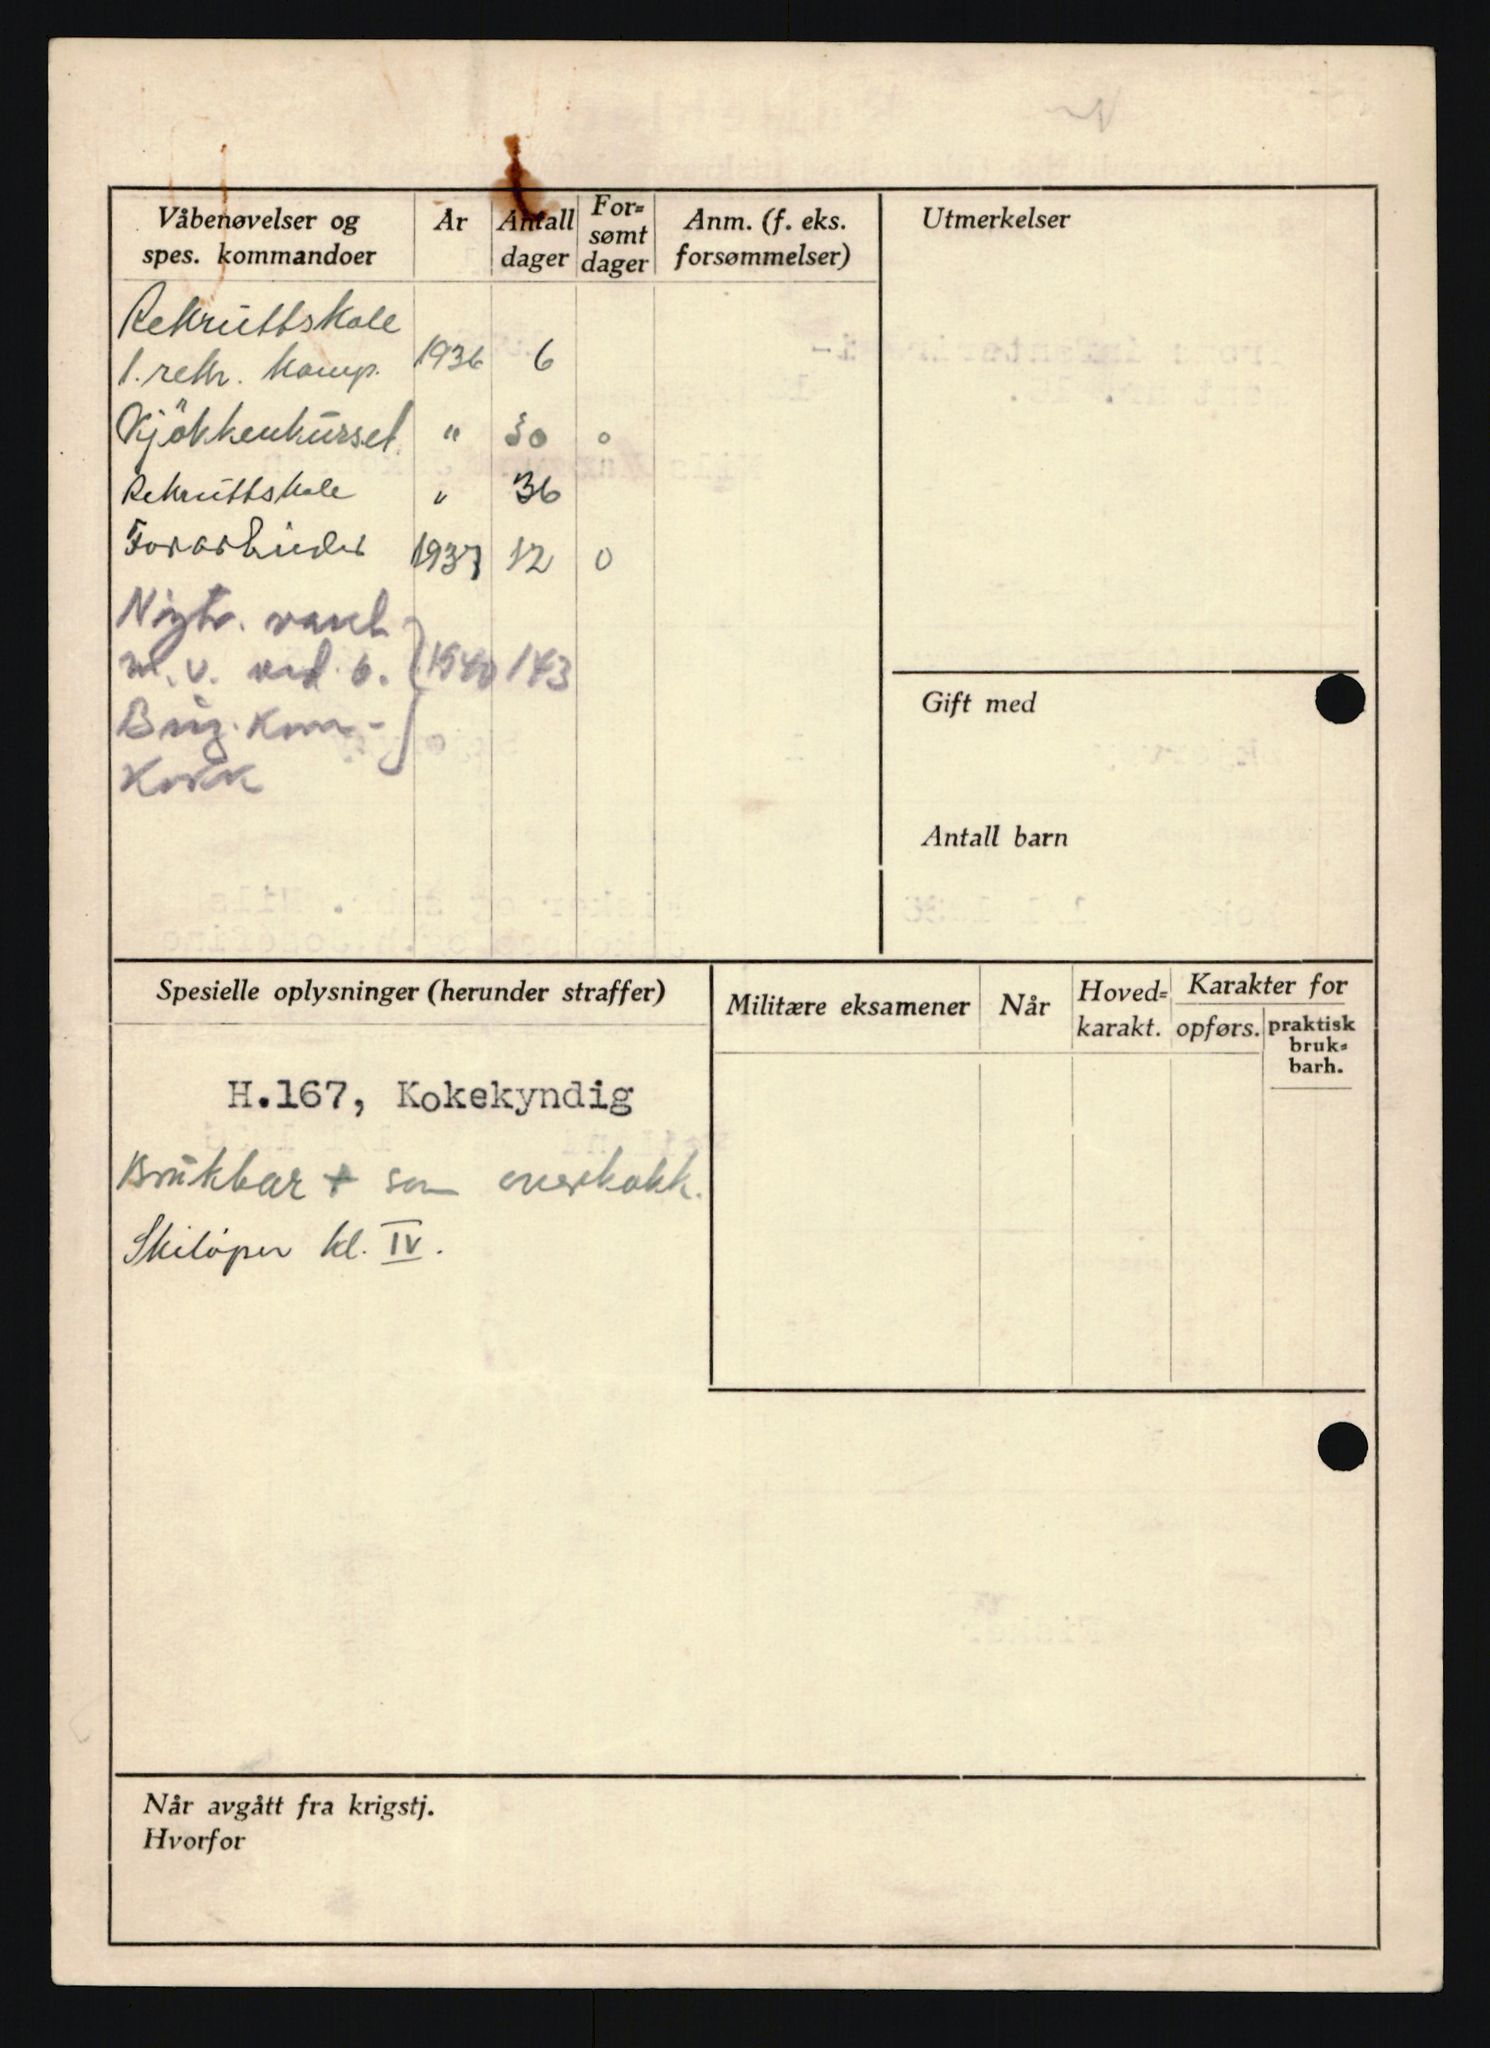 Våbenøvelser og
spes. kommandoer
Ar
Antall
dager
For=
sømt
dager
Anm. (f. eks.
forsømmelser)
Utmerkelser
Rekruttskole
1. rekr. komp. 1936 6
Kjökkenkurset " 30 0
Rekruttskole " 36
Forarbeider 1937 12 0
Nøytr. vakt
m. v. ved 6. 1940 143
Brig. Kom-
Kokk
Gift med
Antall barn
Spesielle oplysninger (herunder straffer)
H.167, Kokekyndig
Brukbar + som overkokk.
Skiløper kl. IV.
Militære eksamener
Når
Hoved=
karakt.
Karakter for
opførs.
praktisk
bruk=
barh.
Når avgått fra krigstj.
Hvorfor